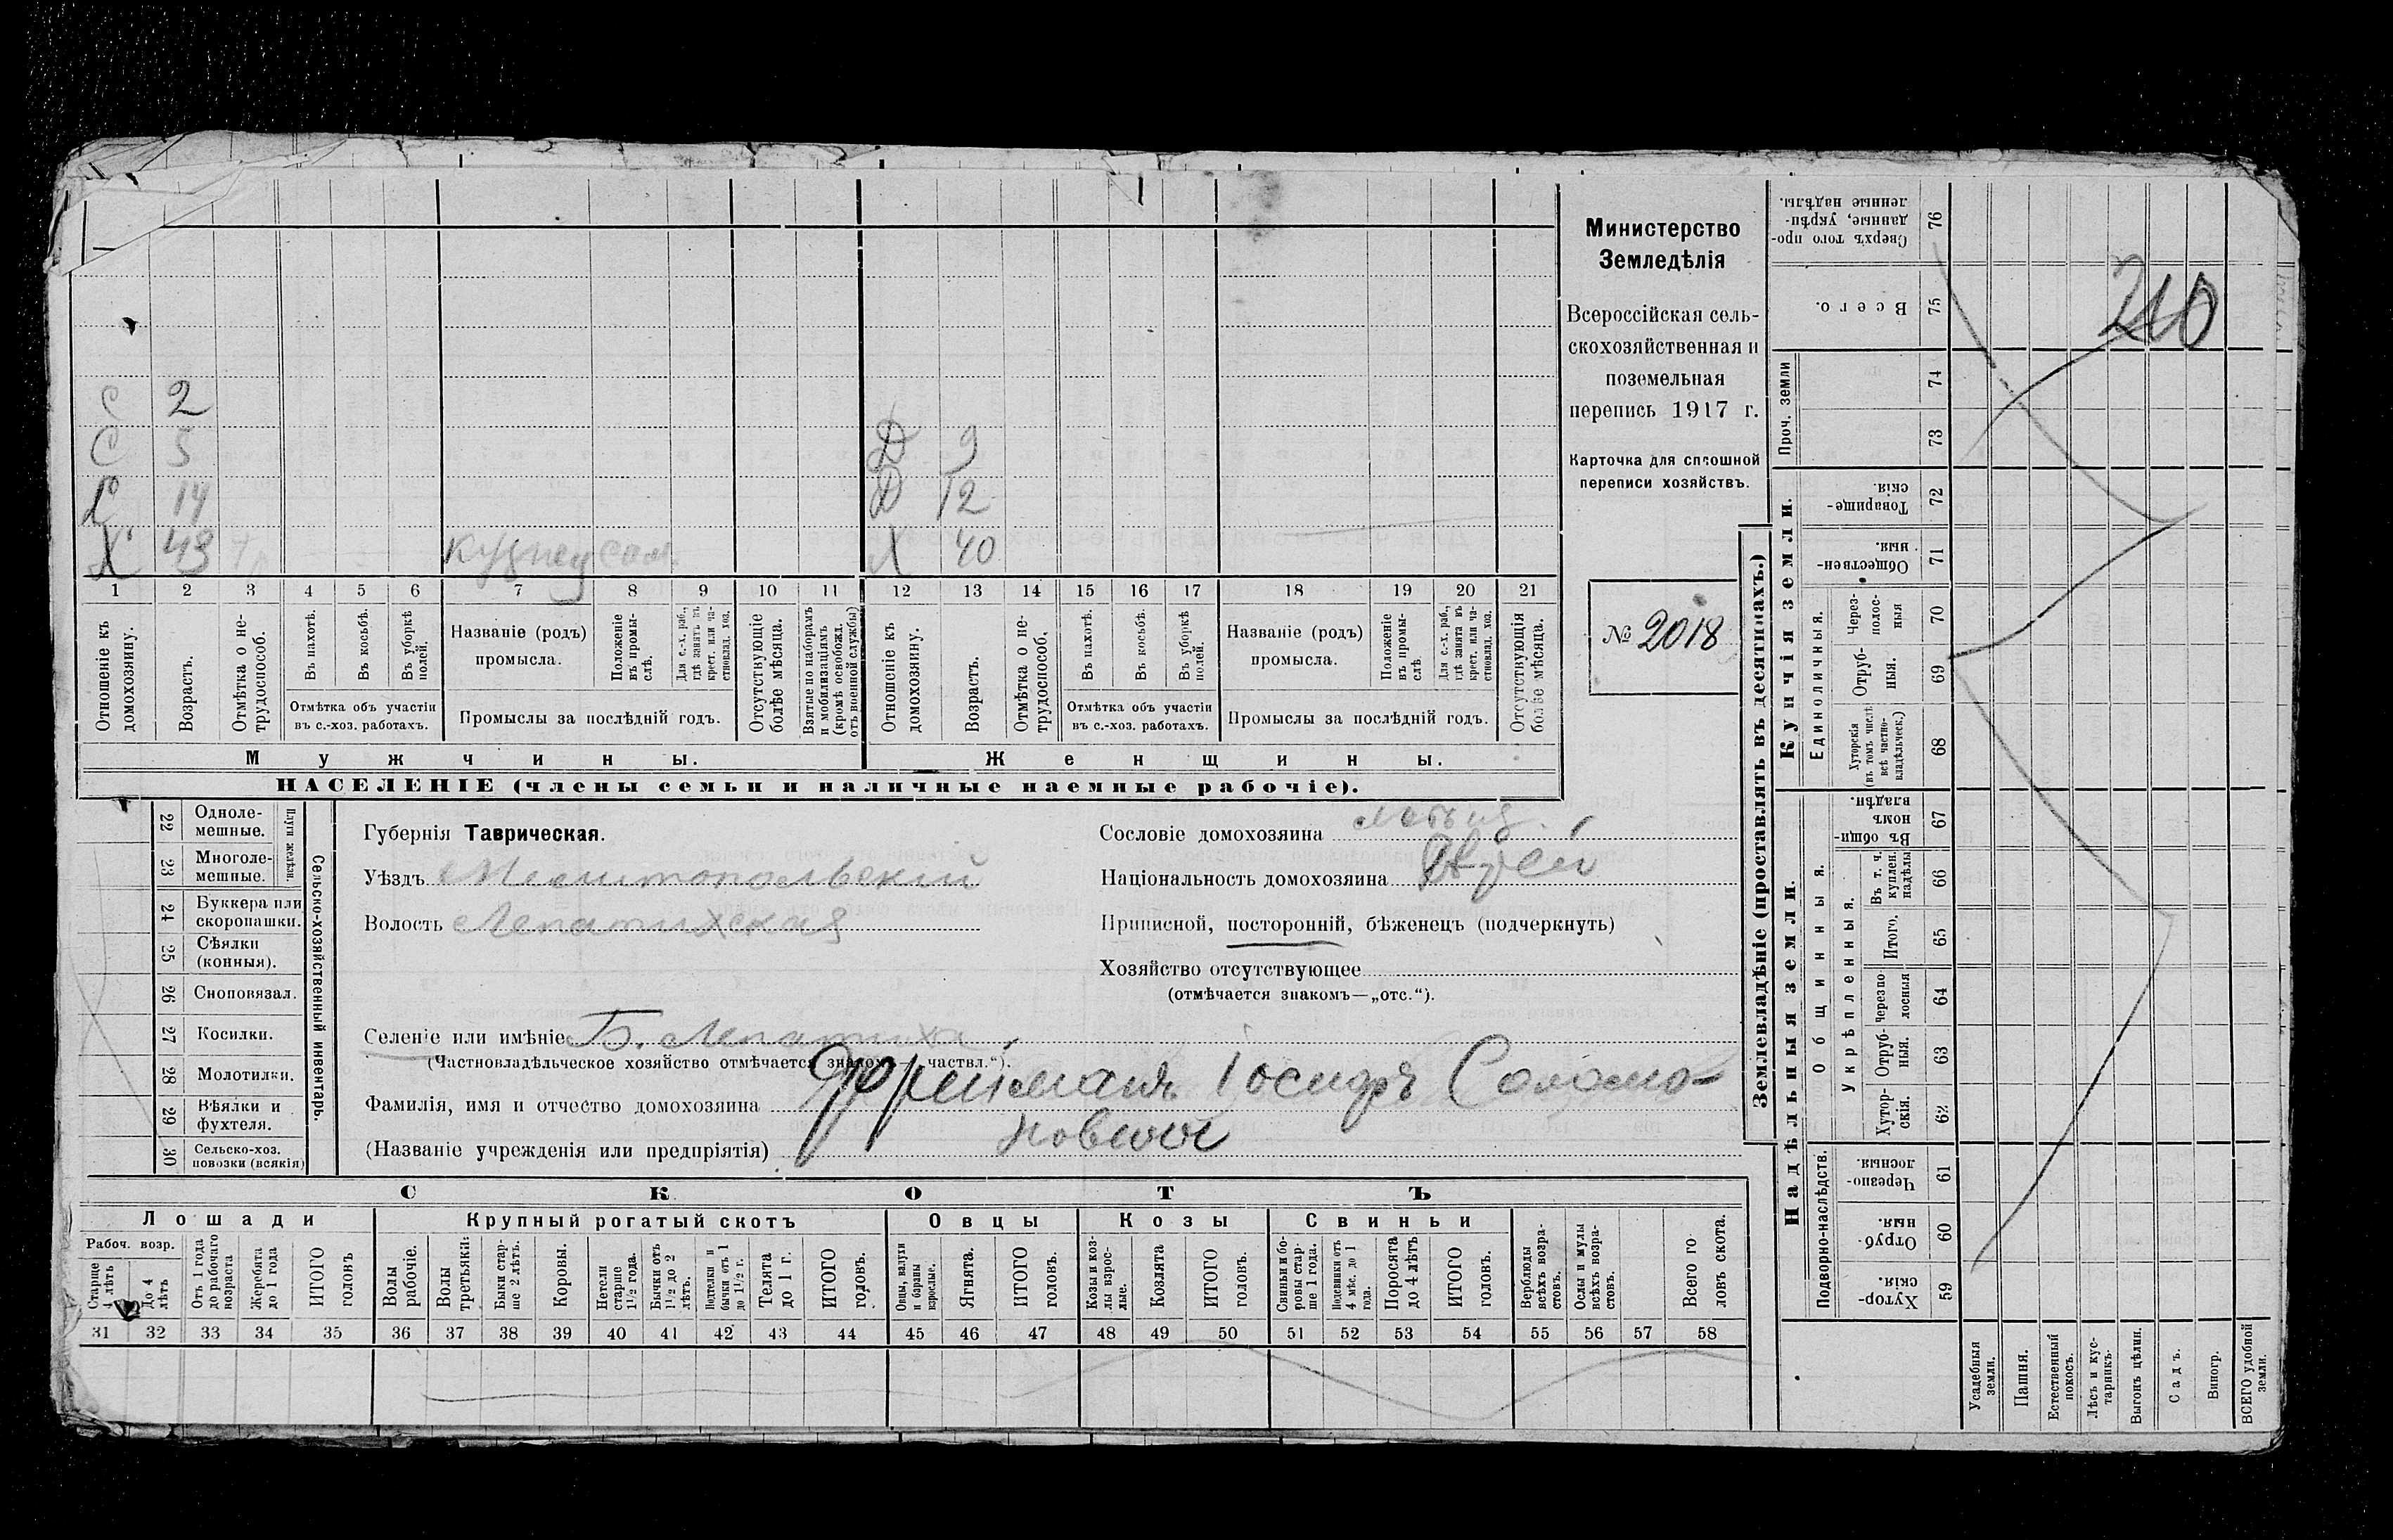 С 2
С 5 Д 9
С 14 Д 12
Х 43 кузнец Х 40
1 2 3 4 5 6 7 8 9 10 11 12 13 14 15 16 17 18 19 20 21
Отношеніе къ домохозяину.
Возрастъ.
Отмѣтка о не-
трудоспособ.
Въ пахотѣ.
Въ косьбѣ.
Въ уборкѣ полей.
Отмѣтка объ участіи
въ с.-хоз. работахъ.
Названіе (родъ)
промысла.
Положеніе
въ промы-
слѣ.
Для с.-х. раб.,
гдѣ занятъ въ
крест. или ча-
стновлад. хоз.
Промыслы за послѣдній годъ.
Отсутствующіе
болѣе мѣсяца.
Взятые по наборамъ
и мобилизаціямъ
(кромѣ освобожд.
отъ военной службы)
Отношеніе къ
домохозяину.
Возрастъ.
Отмѣтка о не-
трудоспособ.
Въ пахотѣ.
Въ косьбѣ.
Въ уборкѣ
полей.
Отмѣтка объ участіи
въ с.-хоз. работахъ.
Названіе (родъ)
промысла.
Положеніе
въ промы-
слѣ.
Для с.-х. раб.,
гдѣ занята въ
крест. или ча-
стновлад. хоз.
Промыслы за послѣдній годъ.
Отсутствующія
болѣе мѣсяца.
Мужчины. Женщины.
НАСЕЛЕНІЕ (члены семьи и наличные наемные рабочіе).
Министерство
Земледѣлія
Всероссійская сель-
скохозяйственная и
поземельная
перепись 1917 г.
Карточка для сплошной
переписи хозяйствъ.
№ 2018
22 Одноле-
мешные.
23 Многоле-
мешные.
Плуги желѣзн.
24 Буккера или
скоропашки.
25 Сѣялки
(конныя).
26 Сноповязал.
27 Косилки.
28 Молотилки.
29 Вѣялки и
фухтеля.
30 Сельско-хоз.
повозки (всякія)
Сельско-хозяйственный инвентарь.
Губернія Таврическая.
Уѣздъ Мелитопольскій
Волость Лепатихская
Селеніе или имѣніе Б. Лепатиха
(Частновладѣльческое хозяйство отмѣчается знакомъ—„частвл.“).
Фамилія, имя и отчество домохозяина Фрейманъ Іосифъ Соломо-
новичъ
(Названіе учрежденія или предпріятія)
Сословіе домохозяина мѣщ.
Національность домохозяина Еврей
Приписной, посторонній, бѣженецъ (подчеркнуть)
Хозяйство отсутствующее
(отмѣчается знакомъ—„отс.“).
СКОТЪ
Лошади Крупный рогатый скотъ Овцы Козы Свиньи
Рабоч. возр.
Старше
4 лѣтъ
До 4
лѣтъ
Отъ 1 года
до рабочаго
возраста
Жеребята
до 1 года
ИТОГО
головъ
Волы
рабочіе.
Волы
третьяки:
Быки стар-
ше 2 лѣтъ.
Коровы.
Нетели
старше
1½ года.
Бычки отъ
1½ до 2
лѣтъ.
Подтелки и
бычки отъ 1
до 1½ г.
Телята
до 1 г.
ИТОГО
головъ.
Овцы, валухи
и бараны
взрослые.
Ягнята.
ИТОГО
головъ.
Козы и коз-
лы взрос-
лые.
Козлята
ИТОГО
головъ.
Свиньи и бо-
ровы стар-
ше 1 года.
Подсвинки отъ
4 мѣс. до 1
года.
Поросята
до 4 лѣтъ
ИТОГО
головъ.
Верблюды
всѣхъ возра-
стовъ.
Ослы и мулы
всѣхъ возра-
стовъ.
Всего го
ловъ скота.
31 32 33 34 35 36 37 38 39 40 41 42 43 44 45 46 47 48 49 50 51 52 53 54 55 56 57 58
Землевладѣніе (проставлять въ десятинахъ.)
Надѣльныя земли. Купчія земли.
Подворно-наслѣдств.
Общинныя.
Укрѣпленныя.
Единоличныя.
Проч. земли
Хутор-
скія. 59
Отруб-
ныя. 60
Черезпо-
лосныя. 61
Хутор-
скія. 62
Отруб-
ныя. 63
Черезпо
лосныя 64
Итого. 65
Въ т. ч.
куплен.
надѣлы 66
Въ общи-
номъ
владѣн. 67
Хуторскія
(въ томъ числѣ
всѣ частно-
владѣльческ.) 68
Отруб-
ныя. 69
Через-
полос-
ныя 70
Обществен-
ныя. 71
Товарище-
скія. 72
73
74
Всего. 75
Сверхъ того про-
данные, укрѣп-
ленные надѣлы. 76
210
Усадебныя
земли.
Пашня.
Естественный
покосъ.
Лѣсъ и кус-
тарникъ.
Выгонъ цѣлин.
Садъ.
Виногр.
ВСЕГО удобной
земли.